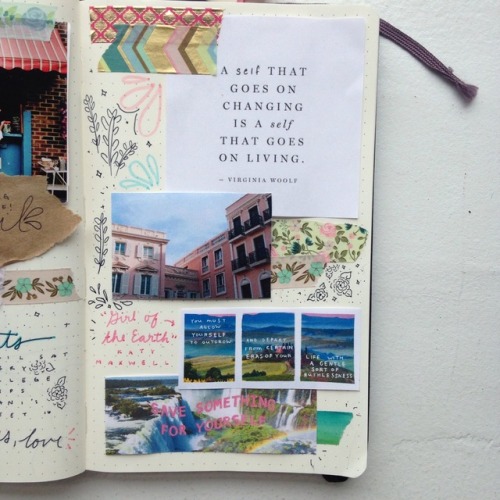 A self THAT
GOES ON
CHANGING
IS A self
THAT GOES
ON LIVING.
— VIRGINIA WOOLF
"Girl of
the Earth"
KATY
MAXWELL
YOU MUST
ALLOW
YOURSELF
TO OUTGROW
AND DEPART
FROM CERTAIN
ERAS OF YOUR
LIFE WITH
A GENTLE
SORT OF
RUTHLESSNESS
SAVE SOMETHING
FOR YOURSELF
love